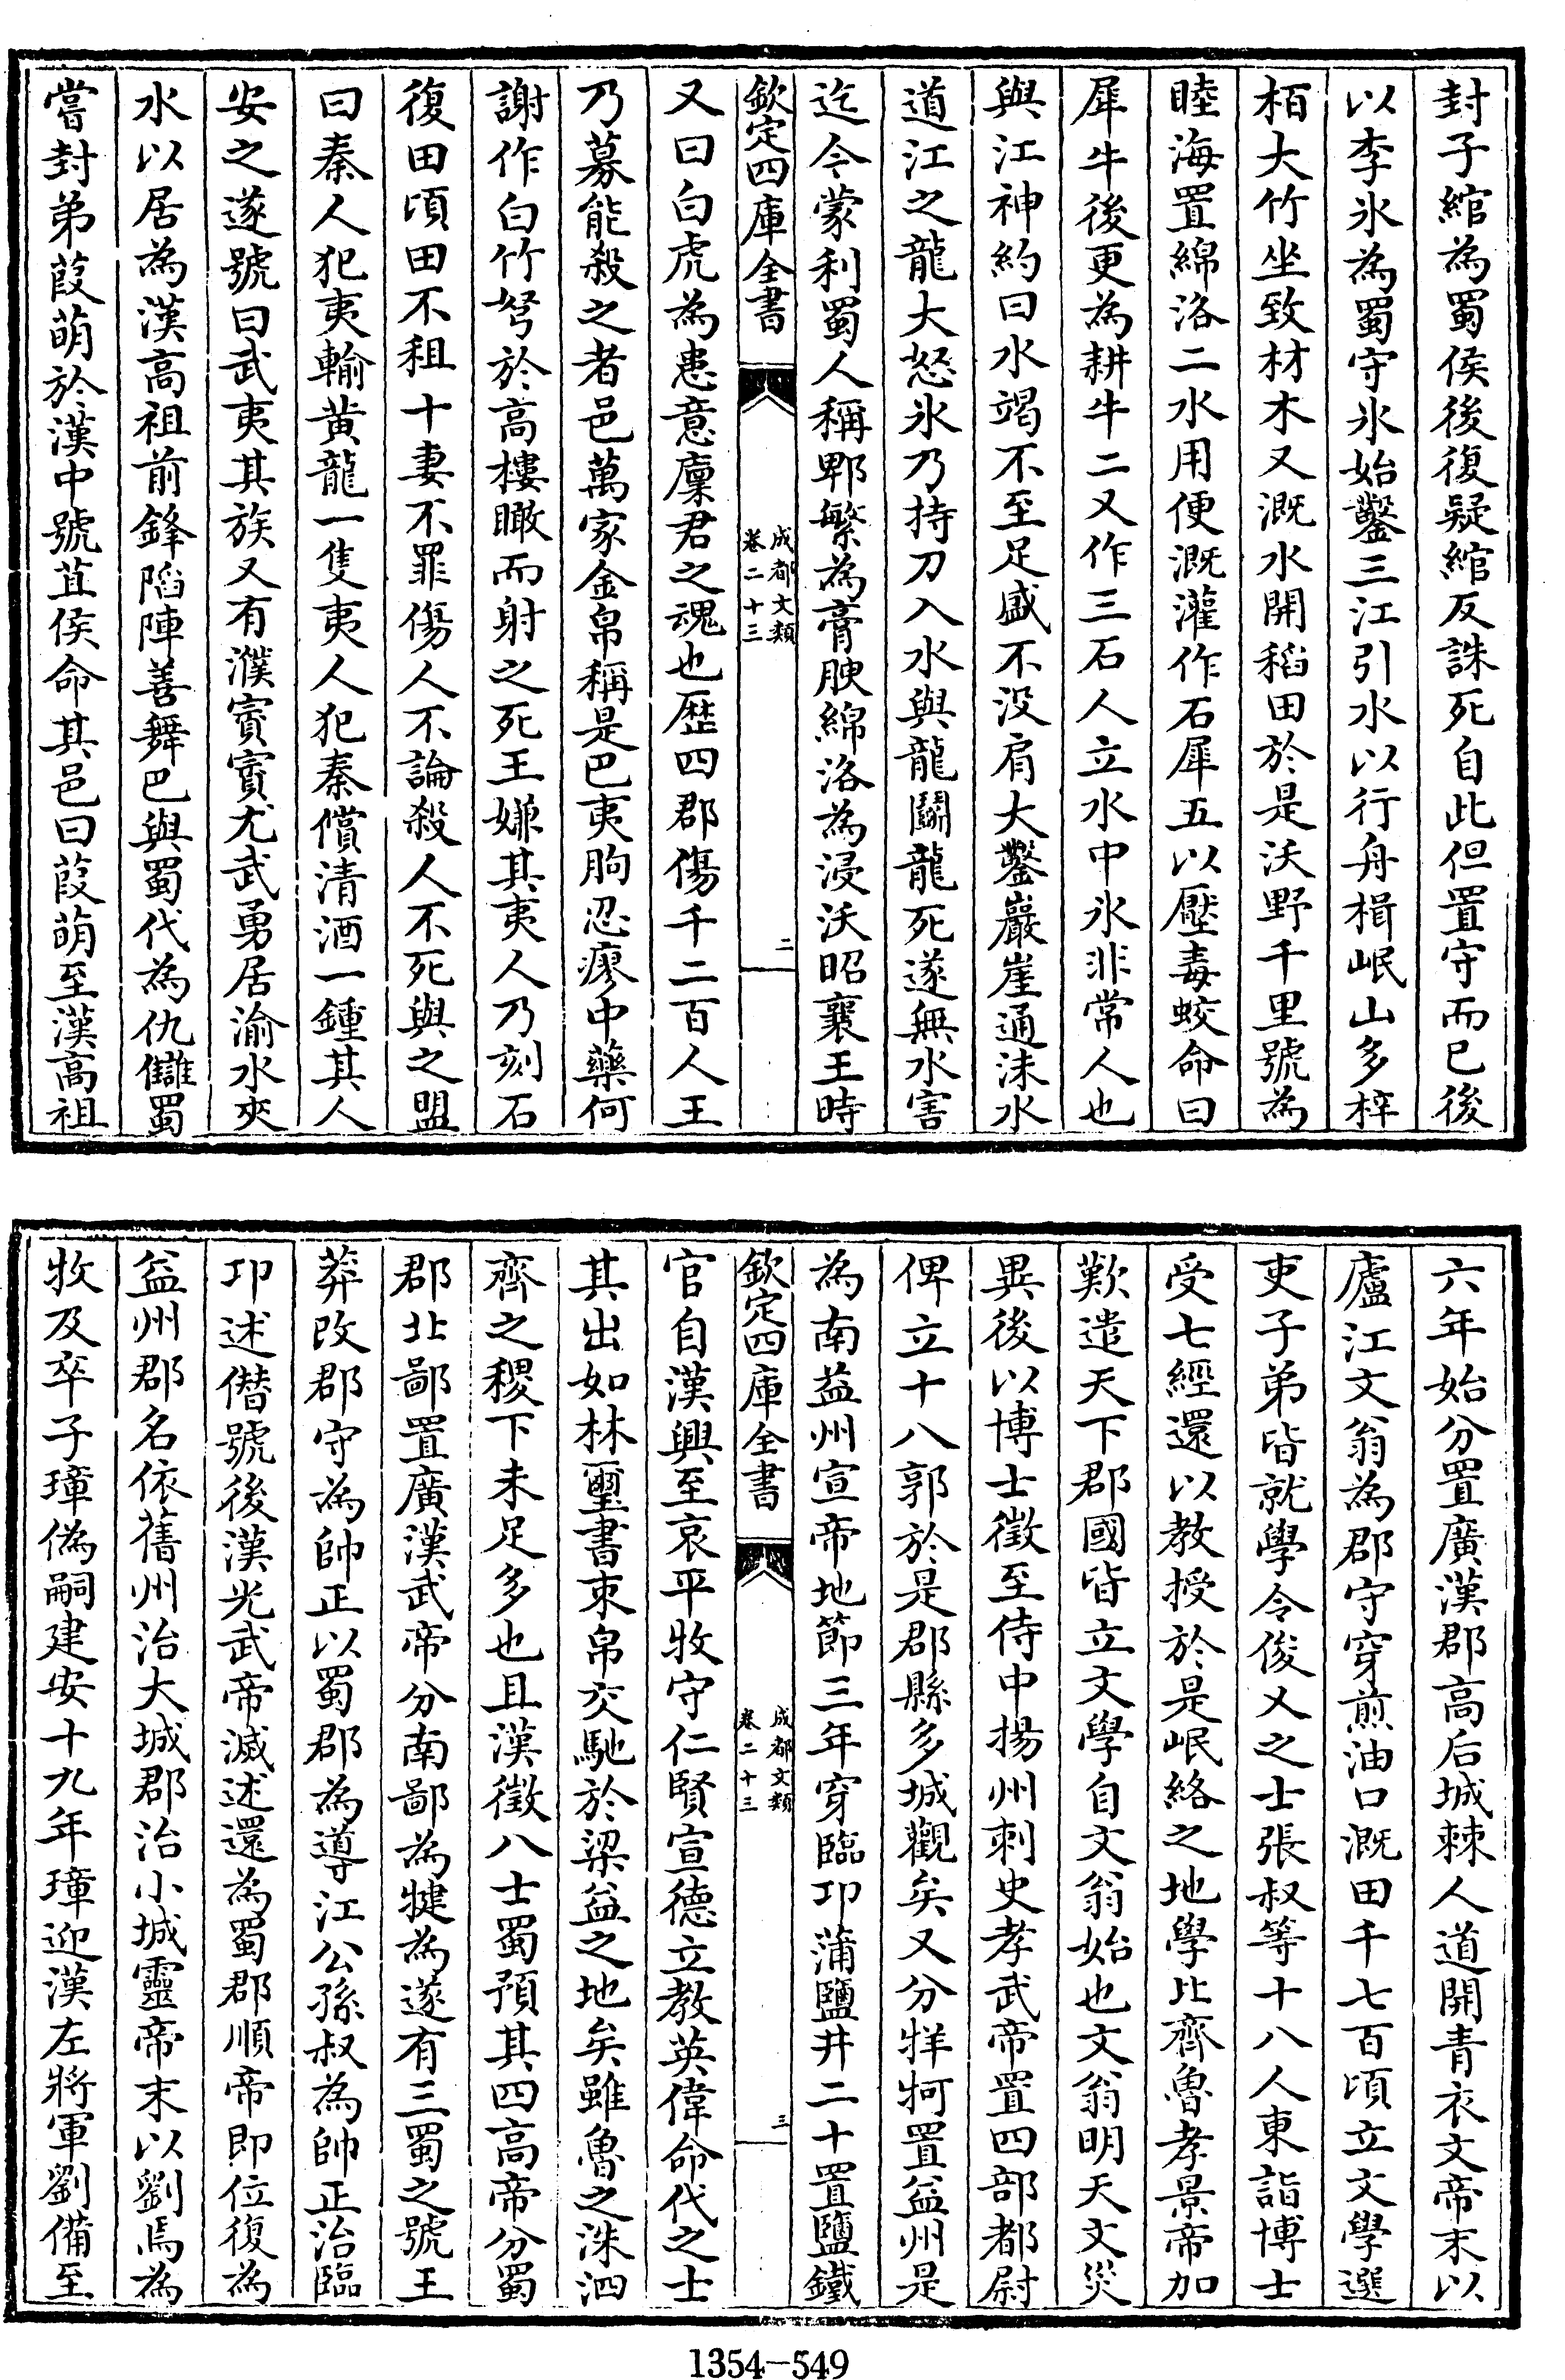 封子綰為蜀侯後復疑綰反誅死自此但置守而已後
以李氷為蜀守氷始鑿三江引水以行舟楫岷山多梓
栢大竹坐致材木又溉水開稻田於是沃野千里號為
睦海置綿洛二水用便溉灌作石犀五以壓毒蛟命曰
犀牛後更為耕牛二又作三石人立水中氷非常人也
與江神約曰水竭不至足盛不没肩大鑿巖崖通沬水
道江之龍大怒氷乃持刀入水與龍鬬龍死遂無水害
迄今蒙利蜀人稱郫繁為膏腴綿洛為浸沃昭襄王時
欽定四庫全書
成都文類
卷二十三
二
又曰白虎為患意廩君之魂也歴四郡傷千二百人王
乃募能殺之者邑萬家金帛稱是巴夷朐忍廖中藥何
謝作白竹弩於高樓瞰而射之死王嫌其夷人乃刻石
復田頃田不租十妻不罪傷人不論殺人不死與之盟
曰秦人犯夷輸黄龍一隻夷人犯秦償清酒一鍾其人
安之遂號曰武夷其族又有濮賨賨尤武勇居渝水夾
水以居為漢高祖前鋒陷陣善舞巴與蜀代為仇讎蜀
嘗封弟葭萌於漢中號苴侯命其邑曰葭萌至漢高祖
六年始分置廣漢郡高后城棘人道開青衣文帝末以
廬江文翁為郡守穿煎油口溉田千七百頃立文學選
吏子弟皆就學令俊乂之士張叔等十八人東詣博士
受七經還以教授於是岷絡之地學比齊魯孝景帝加
歎遣天下郡國皆立文學自文翁始也文翁明天文災
異後以博士徵至侍中揚州刺史孝武帝置四部都尉
俾立十八郭於是郡縣多城觀矣又分牂牁置益州是
為南益州宣帝地節三年穿臨卭蒲鹽井二十置鹽鐵
欽定四庫全書
成都文類
卷二十三
三
官自漢興至哀平牧守仁賢宣德立教英偉命代之士
其出如林璽書束帛交馳於梁益之地矣雖魯之洙泗
齊之稷下未足多也且漢徵八士蜀預其四高帝分蜀
郡北鄙置廣漢武帝分南鄙為犍為遂有三蜀之號王
莽改郡守為帥正以蜀郡為導江公孫叔為帥正治臨
卭述僭號後漢光武帝滅述還為蜀郡順帝即位復為
益州郡名依舊州治大城郡治小城靈帝末以劉焉為
牧及卒子璋偽嗣建安十九年璋迎漢左將軍劉備至
1354-549